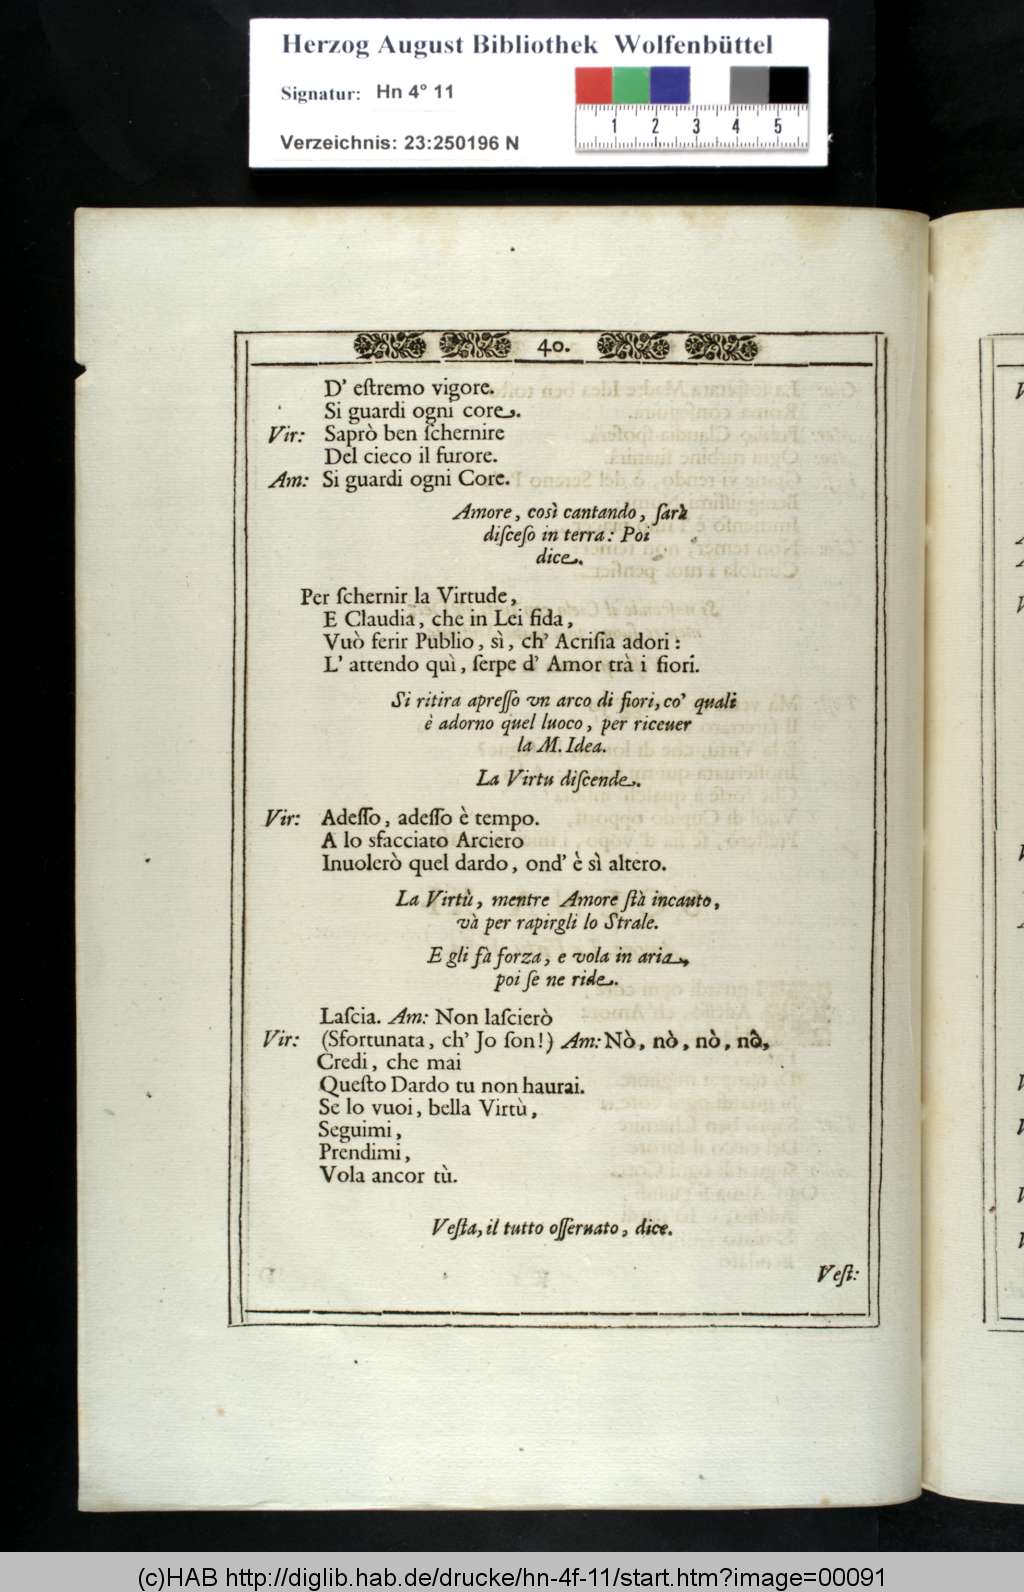 Herzog August Bibliothek Wolfenbüttel
Signatur: Hn 4° 11
Verzeichnis: 23:250196 N
1 2 3 4 5
40.
D' eſtremo vigore.
Si guardi ogni core.
Vir: Saprò ben ſchernire
Del cieco il furore.
Am: Si guardi ogni Core.
Amore, così cantando, ſarà
diſceſo in terra: Poi
dice.
Per ſchernir la Virtude,
E Claudia, che in Lei fida,
Vuò ferir Publio, sì, ch' Acriſia adori:
L' attendo quì, ſerpe d' Amor trà i fiori.
Si ritira apreſſo vn arco di fiori, co' quali
è adorno quel luoco, per riceuer
la M. Idea.
La Virtu diſcende.
Vir: Adeſſo, adeſſo è tempo.
A lo sfacciato Arciero
Inuolerò quel dardo, ond' è sì altero.
La Virtù, mentre Amore ſtà incauto,
và per rapirgli lo Strale.
E gli fà forza, e vola in aria,
poi ſe ne ride.
Laſcia. Am: Non laſcierò
Vir: (Sfortunata, ch' Jo ſon!) Am: Nò, nò, nò, nò,
Credi, che mai
Queſto Dardo tu non haurai.
Se lo vuoi, bella Virtù,
Seguimi,
Prendimi,
Vola ancor tù.
Veſta, il tutto oſſeruato, dice.
Veſt:
(c)HAB http://diglib.hab.de/drucke/hn-4f-11/start.htm?image=00091